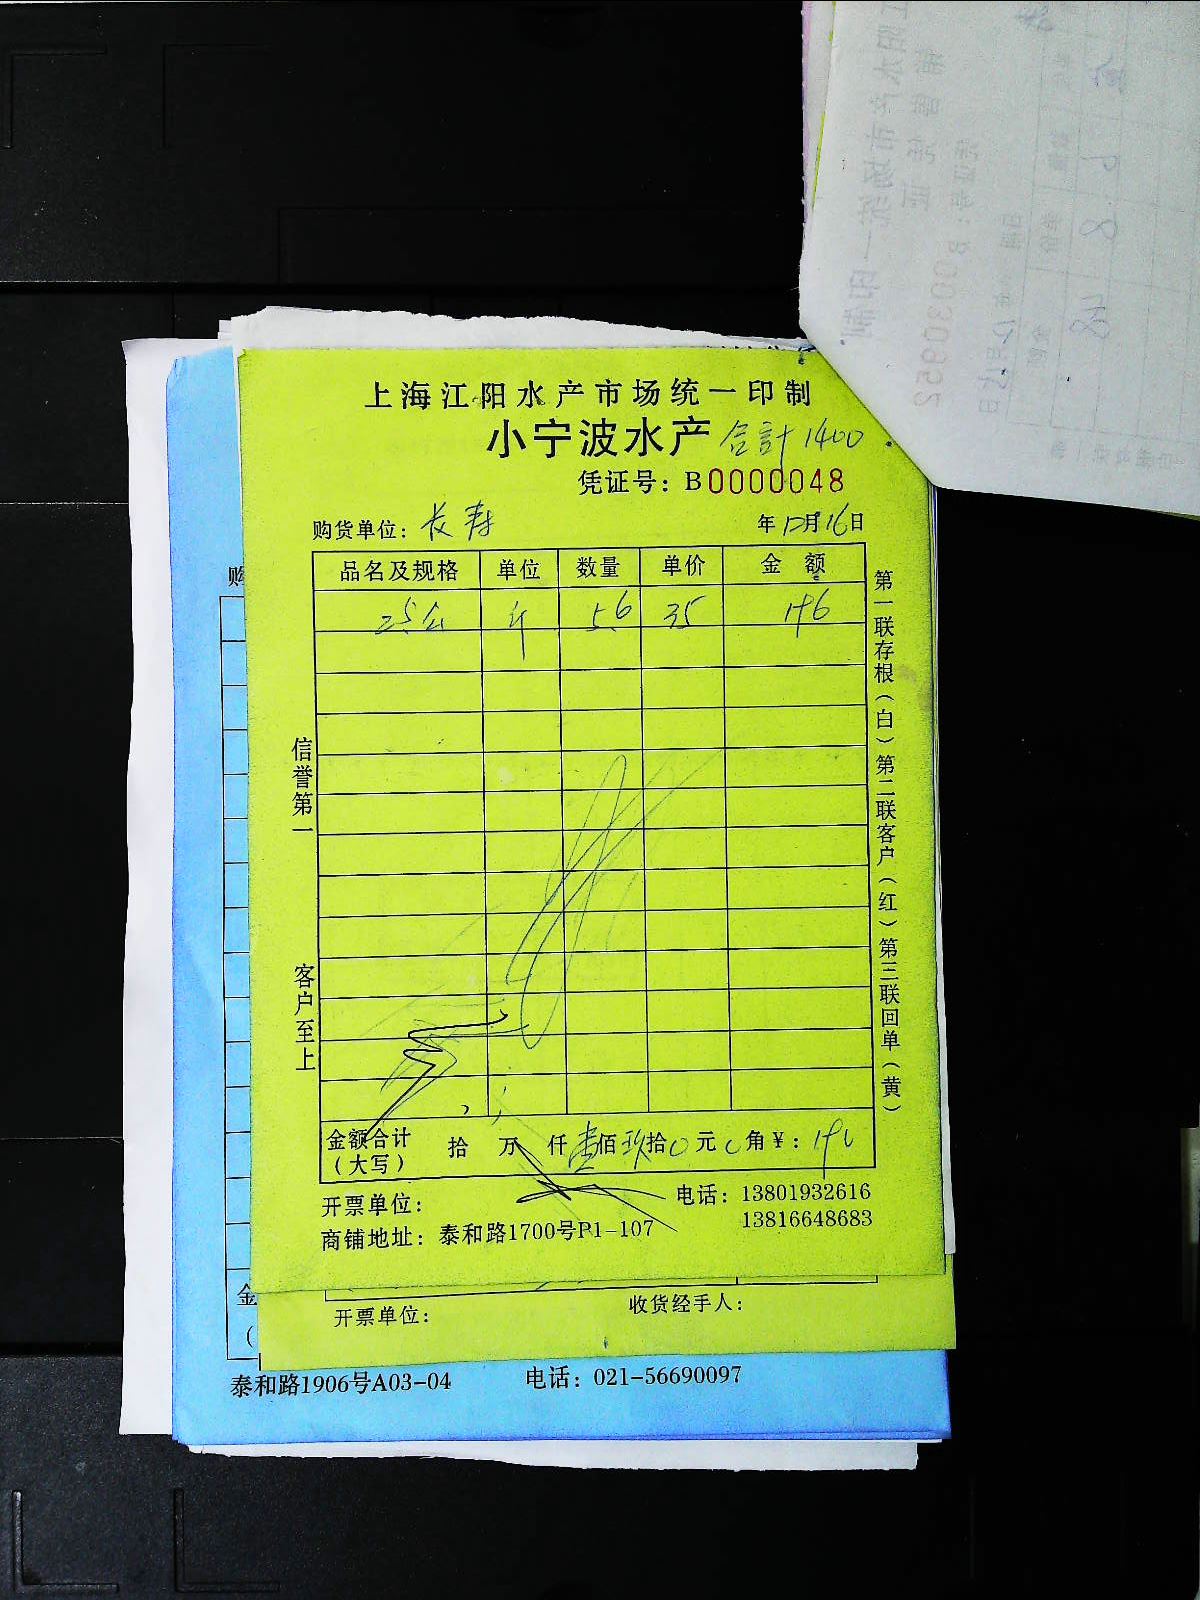 上海江阳水产市场统一印制
小宁波水产 合計1400
凭证号：B0000048
购货单位：长寿 年12月16日
品名及规格 单位 数量 单价 金额
斤 5.6 35 196
信誉第一
客户至上
第一联存根（白）第二联客户（红）第三联回单（黄）
金额合计（大写） 拾 万 仟 壹佰玖拾0元0角￥：190
开票单位： 电话：13801932616
13816648683
商铺地址：泰和路1700号P1-107
开票单位： 收货经手人：
泰和路1906号A03-04 电话：021-56690097
购
金
（